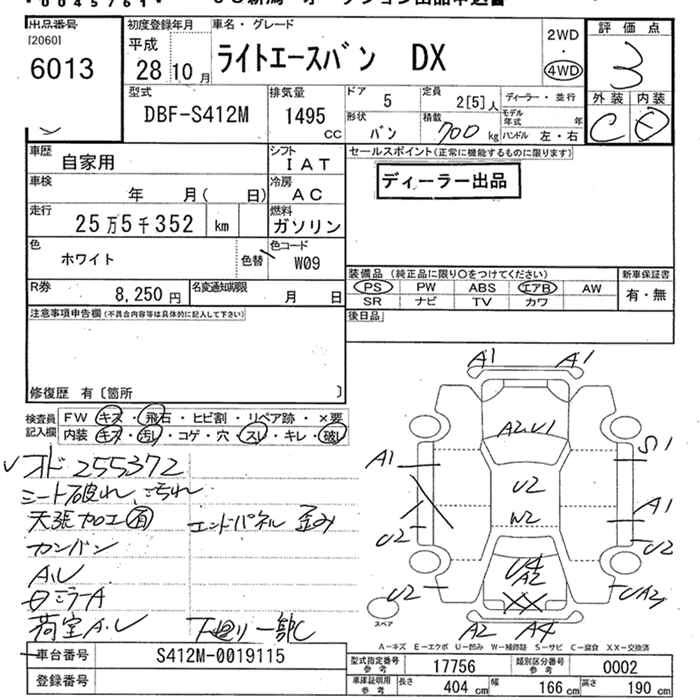 出品番号
[2060]
6013
初度登録年月
平成
28 10 月
車名・グレード
ライトエースバン DX
2WD
・
4WD
評価点
3
外装 内装
C E
型式
DBF-S412M
排気量
1495
CC
ドア 5
定員 2[5]人
ディーラー・並行
形状 バン
積載 700 kg
モデル年式 年
ハンドル 左・右
車歴
自家用
シフト
IAT
車検
年 月( 日)
冷房
AC
走行
25万5千352 km
燃料
ガソリン
色
ホワイト
色替
色コード
W09
R券
8,250円
名変通知期限
月 日
注意事項申告欄(不具合内容等は具体的に記入して下さい)
修復歴 有〔箇所 〕
セールスポイント(正常に機能するものに限ります)
ディーラー出品
装備品(純正品に限り○をつけてください)
PS PW ABS エアB AW
SR ナビ TV カワ
新車保証書
有・無
後日品
検査員記入欄
FW キズ・飛石・ヒビ割・リペア跡・×要
内装 キズ・汚レ・コゲ・穴・スレ・キレ・破レ
オド 255372
シート破れ、汚れ
天張加工有 エンドパネル 歪み
カンバン
A.U
日ミラーA
荷室A.U 下廻り一部C
A1 A1
A2.U1
A1
S1
U2
A1
W2
U2
U2
U4
A2
U2
UA2
XX
A2 A4
スペア
A－キズ E－エクボ U－凹み W－補修跡 S－サビ C－腐食 XX－交換済
車台番号
S412M-0019115
登録番号
型式指定番号
参考
17756
類別区分番号
参考
0002
車庫証明用
参考
長さ 404 cm
幅 166 cm
高さ 190 cm